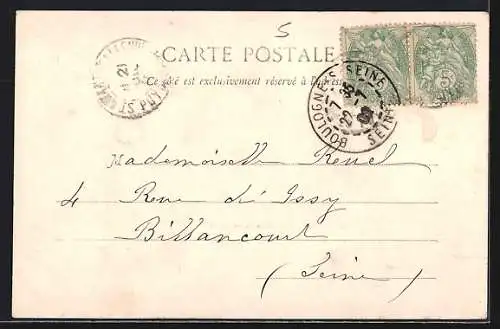 5
CARTE POSTALE
Ce côté est exclusivement réservé à l'adresse
BOULOGNE S SEINE
SEINE
5
Mademoiselle
4 Rue d'Issy
Billancourt
(Seine)